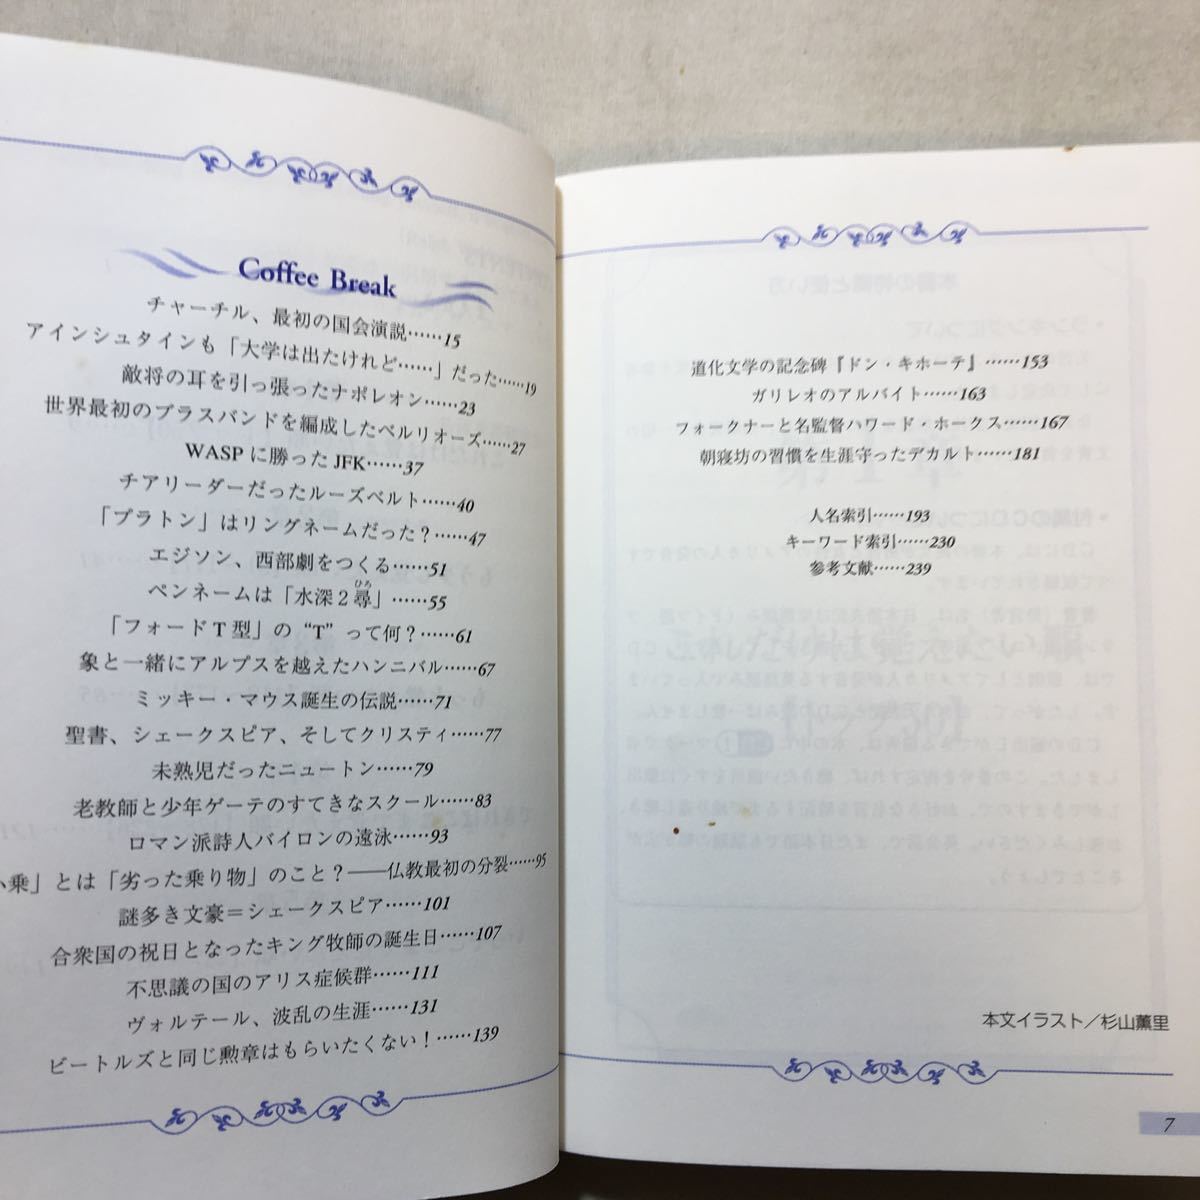 Coffee Break
チャーチル、最初の国会演説……15
アインシュタインも「大学は出たけれど……」だった……19
敵将の耳を引っ張ったナポレオン……23
世界最初のブラスバンドを編成したベルリオーズ……27
WASPに勝ったJFK……37
チアリーダーだったルーズベルト……40
「プラトン」はリングネームだった？……47
エジソン、西部劇をつくる……51
ペンネームは「水深2尋」……55
ひろ
「フォードT型」の“T”って何？……61
象と一緒にアルプスを越えたハンニバル……67
ミッキー・マウス誕生の伝説……71
聖書、シェークスピア、そしてクリスティ……77
未熟児だったニュートン……79
老教師と少年ゲーテのすてきなスクール……83
ロマン派詩人バイロンの遠泳……93
乗」とは「劣った乗り物」のこと？――仏教最初の分裂……95
謎多き文豪＝シェークスピア……101
合衆国の祝日となったキング牧師の誕生日……107
不思議の国のアリス症候群……111
ヴォルテール、波乱の生涯……131
ビートルズと同じ勲章はもらいたくない！……139
道化文学の記念碑『ドン・キホーテ』……153
ガリレオのアルバイト……163
フォークナーと名監督ハワード・ホークス……167
朝寝坊の習慣を生涯守ったデカルト……181
人名索引……193
キーワード索引……230
参考文献……239
本文イラスト／杉山薫里
7